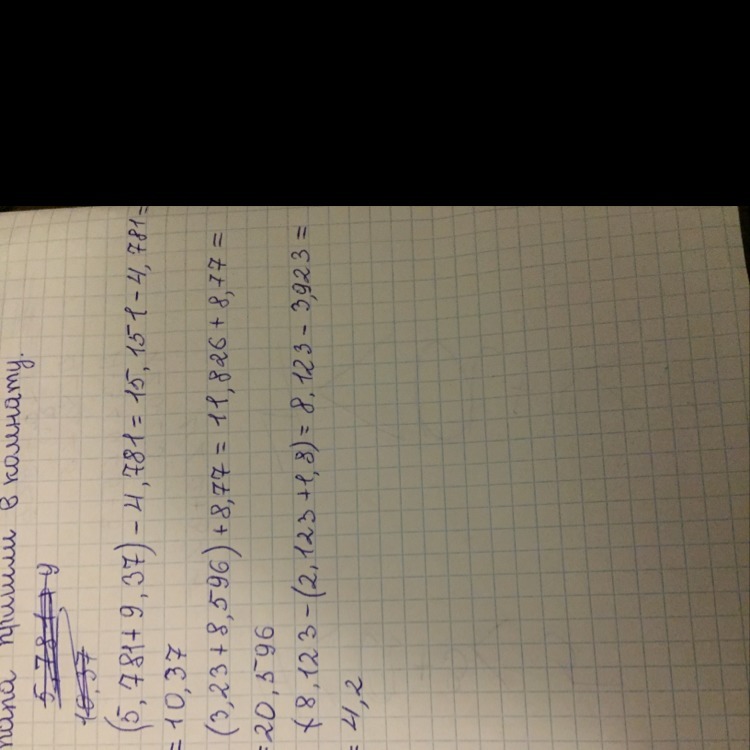 папа пришли в комнату.
(5,781+9,37)-4,781=15,151-4,781=
=10,37
(3,23+8,596)+8,77=11,826+8,77=
=20,596
(8,123-(2,123+1,8)=8,123-3,923=
=4,2